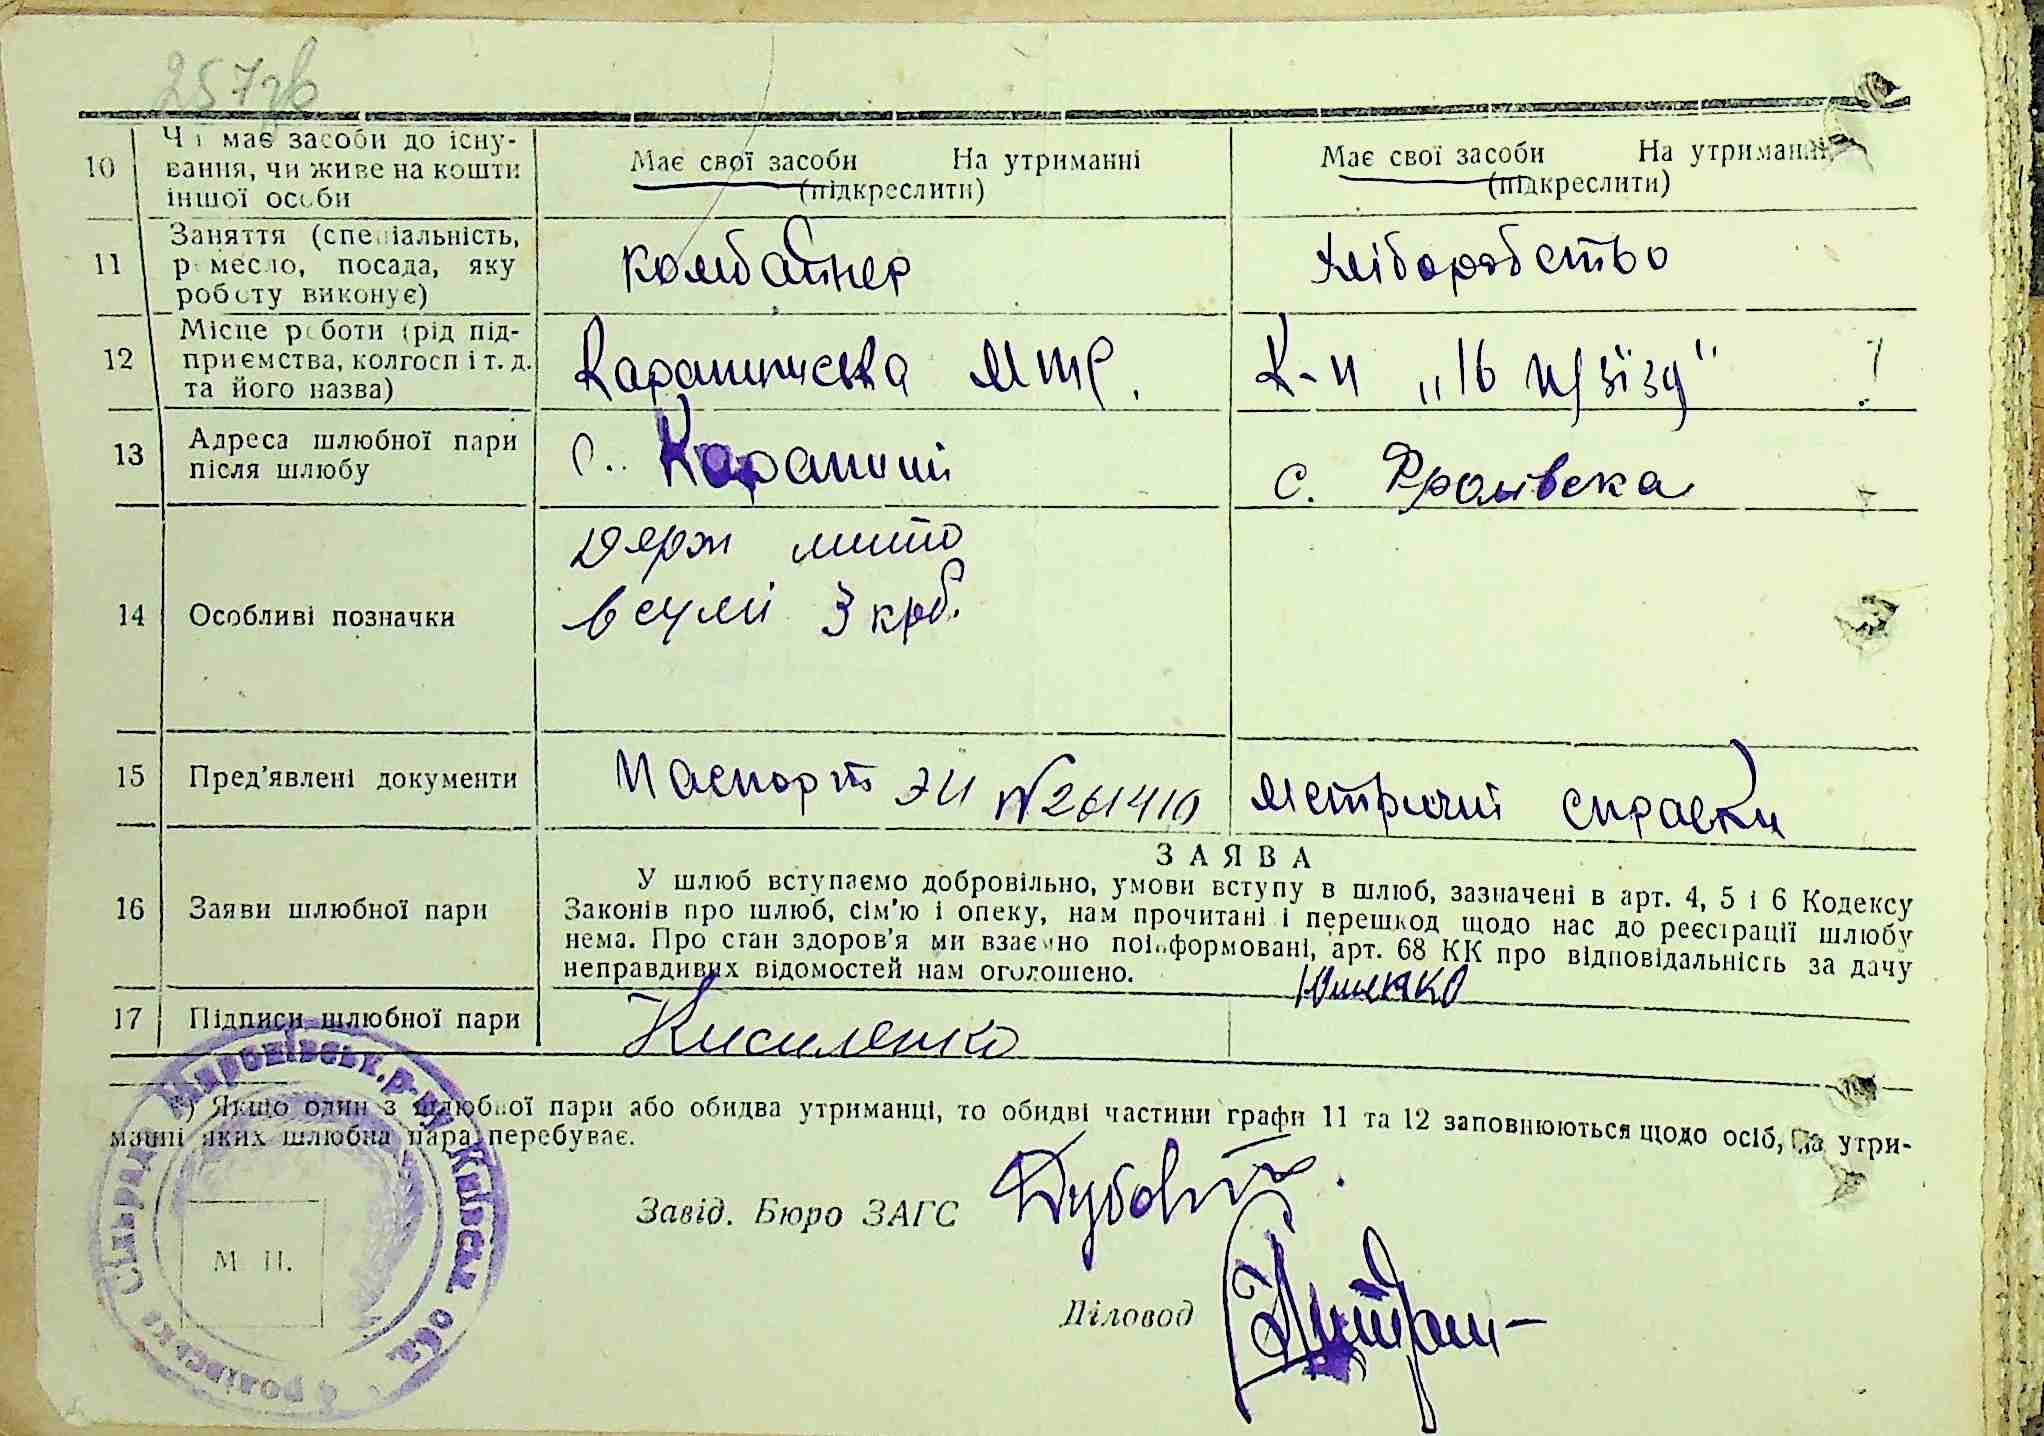 257зв
10 Чи має засоби до існу-
вання, чи живе на кошти
іншої особи
Має свої засоби На утриманні
(підкреслити)
Має свої засоби На утриманні
(підкреслити)
11 Заняття (спеціальність,
ремесло, посада, яку
роботу виконує)
комбайнер
хліборобство
12 Місце роботи (рід під-
приємства, колгосп і т. д.
та його назва)
Карапишська МТС.
К-п „16 п/зїзд"
13 Адреса шлюбної пари
після шлюбу
с. Карапиші
с. Фролівека
14 Особливі позначки
Держ мито
в сумі 3 крб.
15 Пред'явлені документи
Паспорт ЭИ № 261410
метричні справки
16 Заяви шлюбної пари
ЗАЯВА
У шлюб вступаємо добровільно, умови вступу в шлюб, зазначені в арт. 4, 5 і 6 Кодексу
Законів про шлюб, сім'ю і опеку, нам прочитані і перешкод щодо нас до реєстрації шлюбу
нема. Про стан здоров'я ми взаємно поінформовані, арт. 68 КК про відповідальність за дачу
неправдивих відомостей нам оголошено.
17 Підписи шлюбної пари
Кисиленко
Юшенко
*) Якщо один з шлюбної пари або обидва утриманці, то обидві частини графи 11 та 12 заповнюються щодо осіб, на утри-
манні яких шлюбна пара перебуває.
Завід. Бюро ЗАГС
М. П.
Діловод
Сільрада Миронівськ. р-ну Київськ обл.